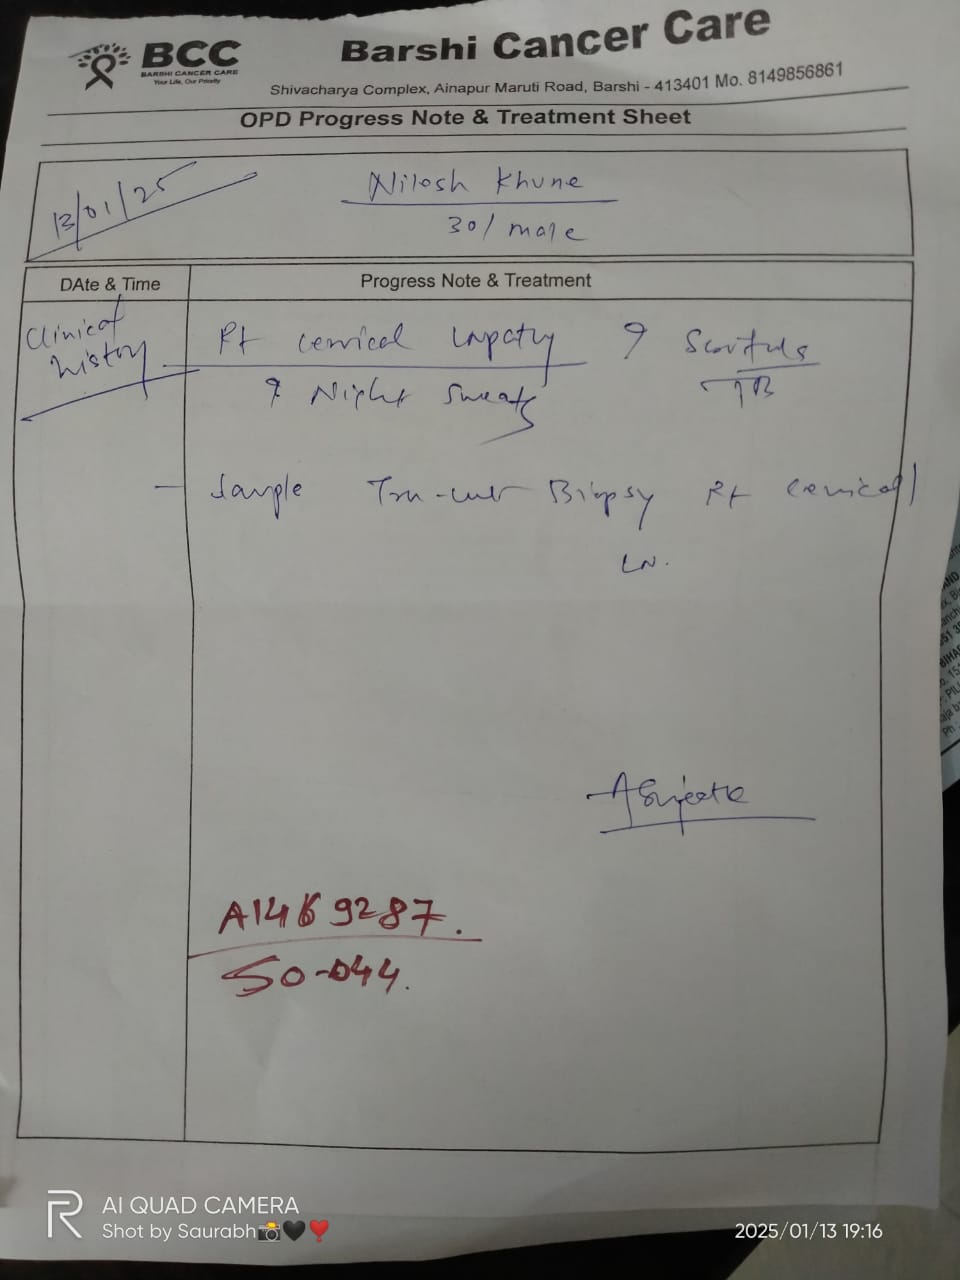 BCC
BARSHI CANCER CARE
Your Life, Our Priority
Barshi Cancer Care
Shivacharya Complex, Ainapur Maruti Road, Barshi - 413401 Mo. 8149856861
OPD Progress Note & Treatment Sheet
13/01/25
Nilesh Khune
30/ male
DAte & Time
Progress Note & Treatment
Clinical
history
Rt cervical
? Night Sweats
TB
- Sample Tru-cut Biopsy Rt cervical
LN.
A1469287.
SO-044.
AI QUAD CAMERA
Shot by Saurabh📸🖤❣️
2025/01/13 19:16